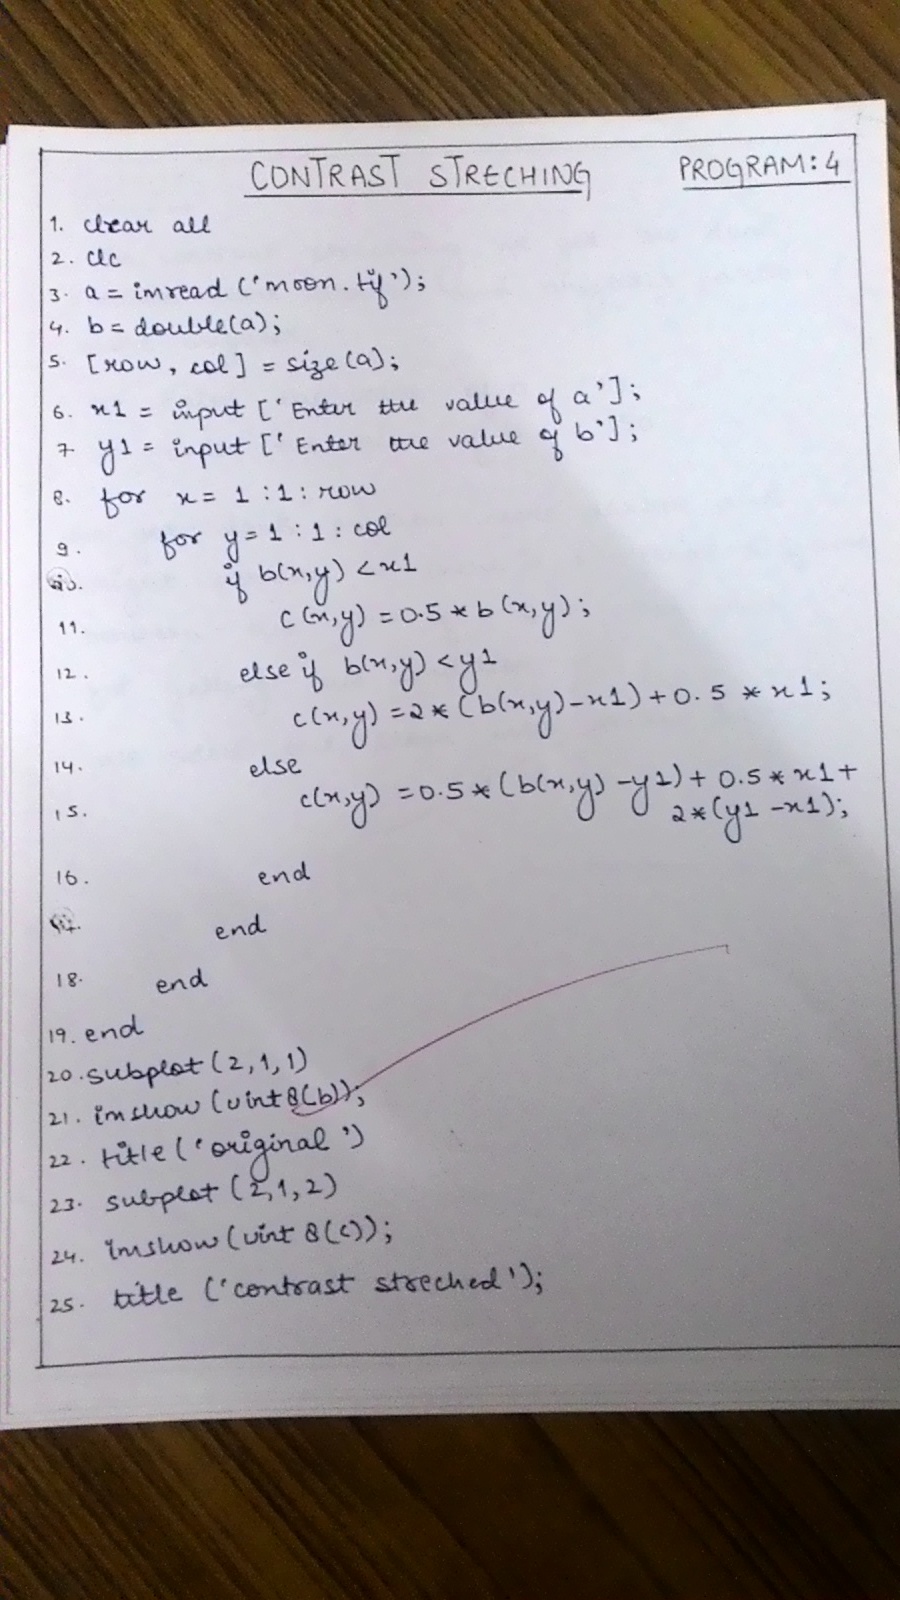 CONTRAST STRECHING PROGRAM: 4
1. clear all
2. clc
3. a = imread ('moon.tif');
4. b = double(a);
5. [row, col] = size(a);
6. x1 = input ['Enter the value of a'];
7. y1 = input ['Enter the value of b'];
8. for x = 1 : 1 : row
9. for y = 1 : 1 : col
10. if b(x,y) < x1
11. c(x,y) = 0.5 * b(x,y);
12. else if b(x,y) < y1
13. c(x,y) = 2 * (b(x,y) - x1) + 0.5 * x1;
14. else
15. c(x,y) = 0.5 * (b(x,y) - y1) + 0.5 * x1 +
2 * (y1 - x1);
16. end
17. end
18. end
19. end
20. subplot (2,1,1)
21. imshow (uint8(b));
22. title ('original')
23. subplot (2,1,2)
24. imshow (uint 8(c));
25. title ('contrast streched');